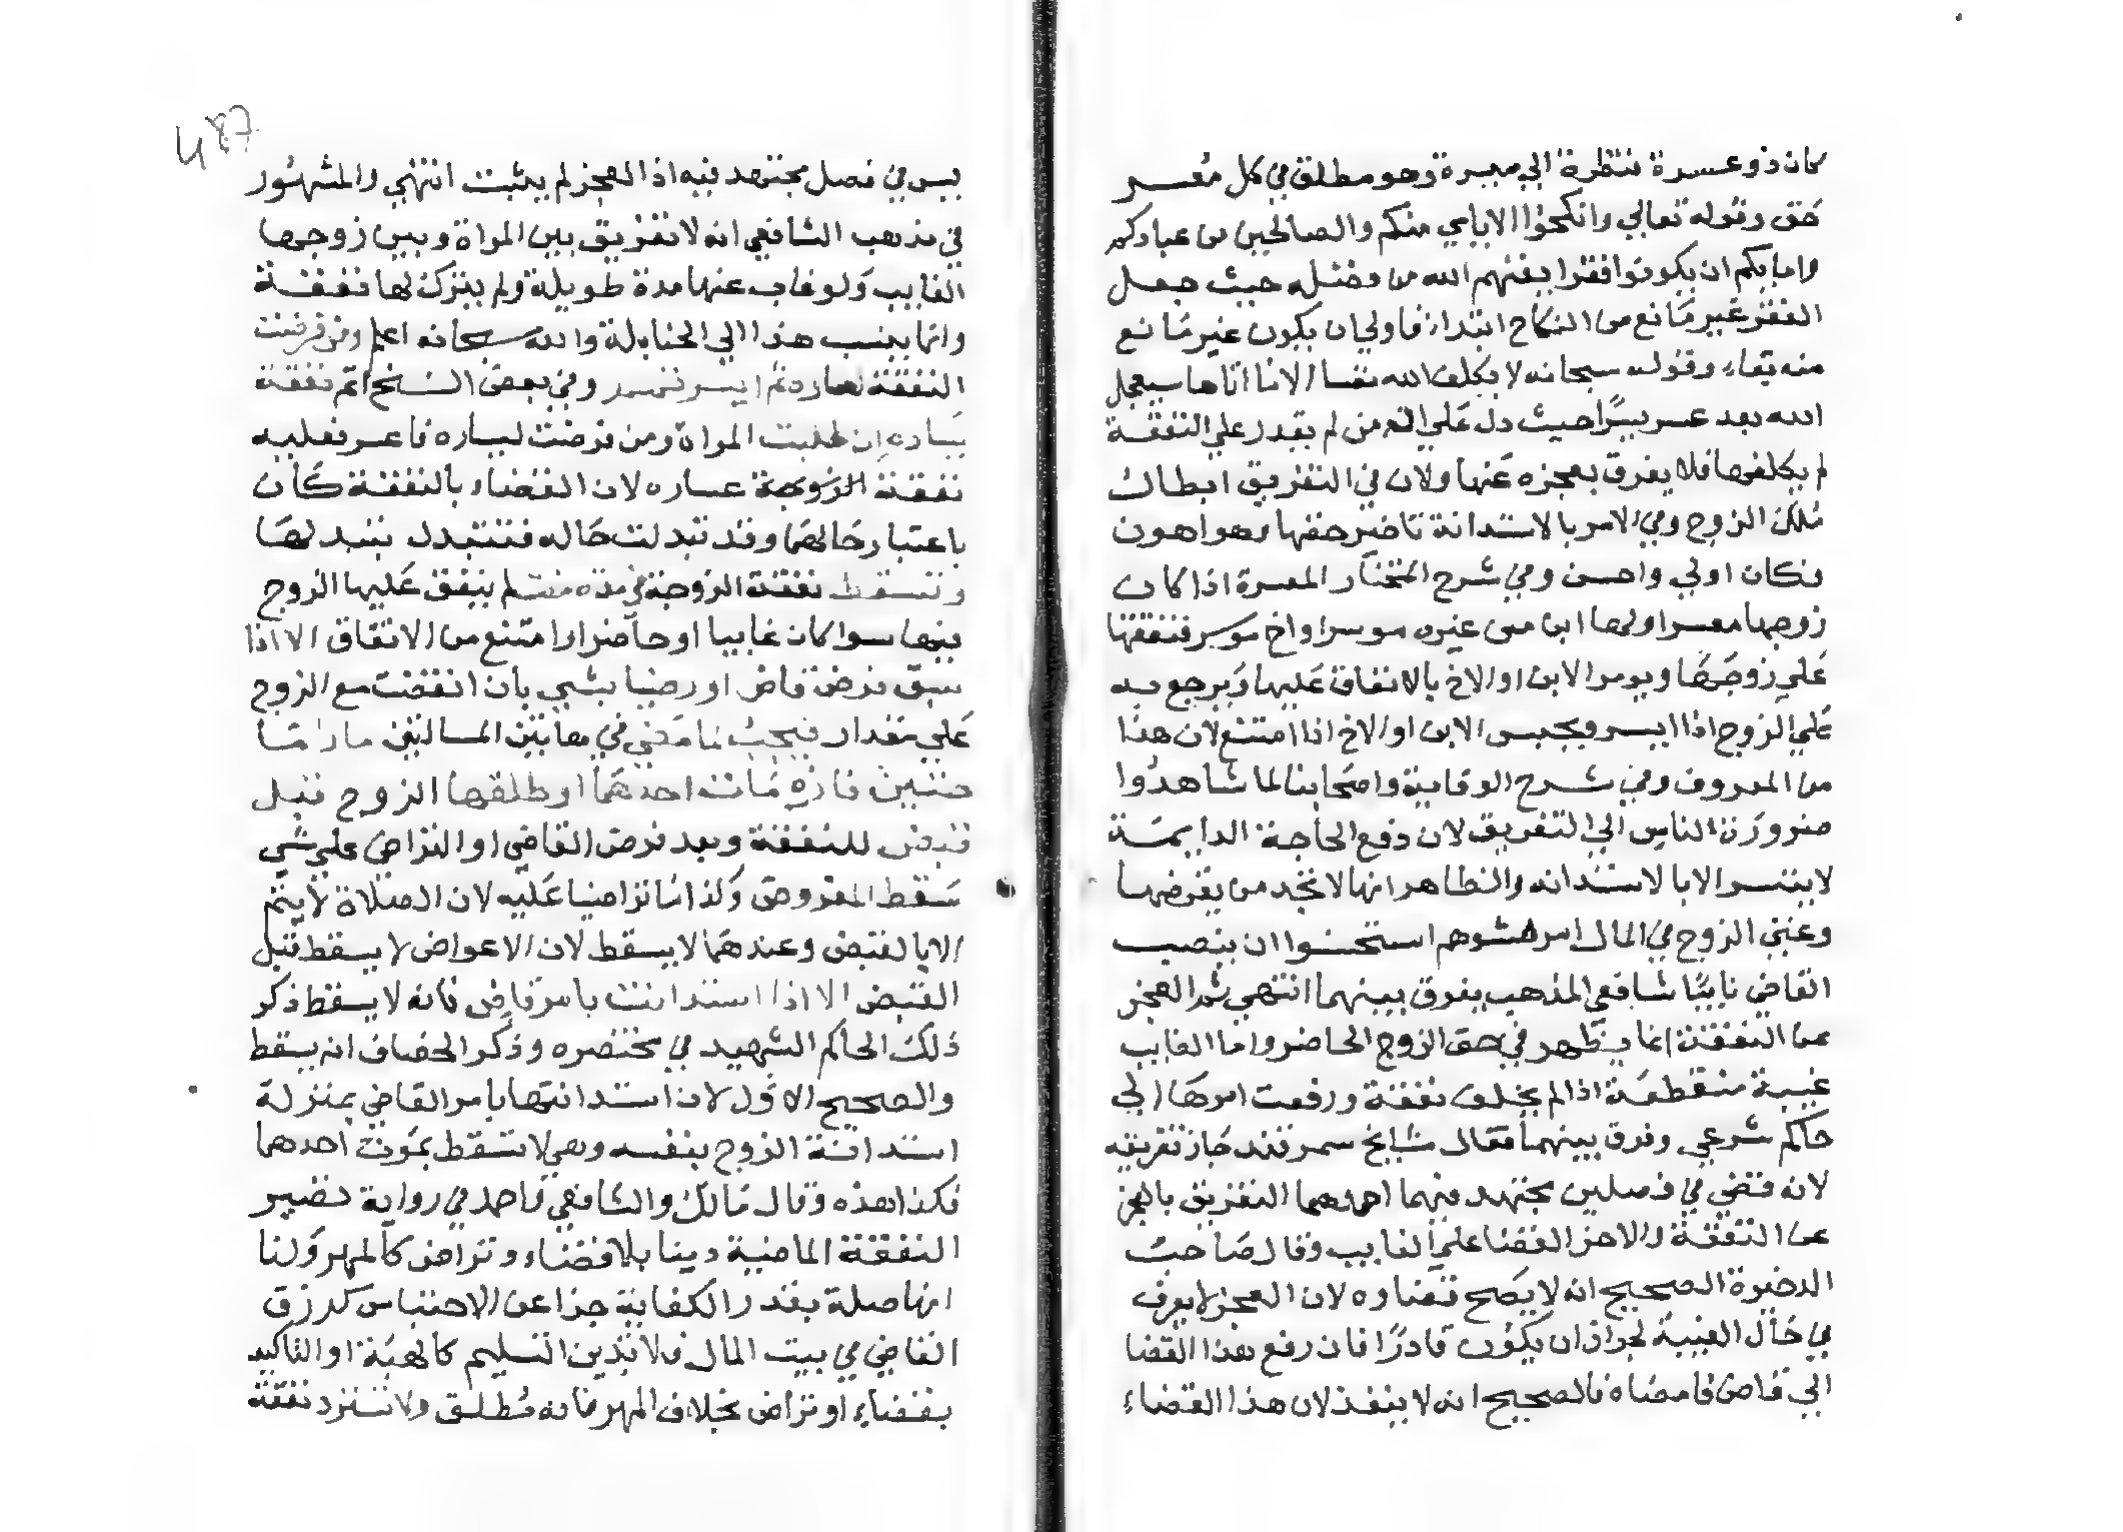 كان ذو عسرة فنظرة الي ميسرة وهو مطلق في كل معسر
حتى وقوله تعالي وانكحوا الايامي منكم والصالحين من عبادكم
وامايكم ان يكونوا فقرا يغنهم الله من فضله حيث جعل
الفقر غير مانع من النكاح ابتداء فاولي ان يكون غير مانع
منه بقاء وقوله سبحانه لا يكلف الله نفسا الا ما اتاها سيجعل
الله بعد عسر يسرا حيث دل علي انه من لم يقدر علي النفقة
لم يكلفها فلا يفرق بعجزه عنها ولان في التفريق ابطال
ملك الزوج وفي الامر بالاستدانة تاخير حقها وهو اهون
فكان اولي واحسن وفي شرح المختار المعسرة اذا كان
زوجها معسرا ولها ابن من غيره موسرا واخ موسر فنفقتها
علي زوجها ويومر الابن او الاخ بالانفاق عليها ويرجع به
علي الزوج اذا ايسر ويحبس الابن او الاخ اذا امتنع لان هذا
من المعروف وفي شرح الوقاية واصحابنا لما شاهدوا
ضرورة الناس الي التفريق لان دفع الحاجة الدايمة
لا يتيسر الا بالاستدانه والظاهر انها لا تجد من يقرضها
وغني الزوج في المال امر متوهم استحسنوا ان ينصب
القاضي نايبا شافعي المذهب يفرق بينهما انتهي ثم العجز
عن النفقة انما يظهر في حق الزوج الحاضر واما الغايب
غيبة منقطعة اذا لم يخلف نفقة ورفعت امرها الي
حاكم شرعي وفرق بينهما فقال مشايخ سمرقند جاز تفريقه
لانه قضي في فصلين مجتهد فيهما احدهما التفريق بالعجز
عن النفقة والاخر القضا علي الغايب وقال صاحب
الدخيرة الصحيح انه لا يصح قضاوه لان العجز لا يعرف
في حال الغيبة لجواز ان يكون قادرا فان رفع هذا القضا
الي قاض فامضاه فالصحيح انه لا ينفذ لان هذا القضاء
487
ليس في فصل مجتهد فيه اذ العجز لم يثبت انتهي والمشهور
في مذهب الشافعي انه لا تفريق بين المراة وبين زوجها
الغايب ولو غاب عنها مدة طويلة ولم يترك لها نفقة
وانما ينسب هذا الي الحنابلة والله سبحانه اعلم ومن فرضت
النفقة لعساره ثم ايسر وفي بعض النسخ اتم نفقة
يساره ان طلبت المراة ومن فرضت ليساره فاعسر فعليه
نفقة الزوجة عساره لان القضاء بالنفقة كان
باعتبار حالهما وقد تبدلت حاله فتتبدل بتبدلها
وتسقط نفقة الزوجة في مدة مضت لم ينفق عليها الزوج
فيها سوا كان غايبا او حاضرا وامتنع من الانفاق الا اذا
سبق فرض قاض او رضيا بشي بان اتفقت مع الزوج
علي مقدار فيجب لما مضي في هاتين المسالتين ما داما
حيين فان مات احدهما او طلقها الزوج قبل
قبض للنفقة وبعد فرض القاضي او التراضي علي شي
سقط المفروض وكذا ما تراضيا عليه لان الصلاة لا يتم
الا بالقبض وعندهما لا يسقط لان الاعواض لا يسقط قبل
القبض الا اذا استدانت بامر قاض فانه لا يسقط ذكر
ذلك الحاكم الشهيد في مختصره وذكر الخصاف انه يسقط
والصحيح الاول لان استدانتها بامر القاضي بمنزلة
استدانة الزوج بنفسه وهي لا تسقط بموت احدهما
فكذا هذه وقال مالك والشافعي واحمد في رواية تصير
النفقة الماضية دينا بلا قضاء وتراض كالمهر ولنا
انها صلة بقدر الكفاية جزا عن الاحتباس كرزق
القاضي في بيت المال فلا بد من التسليم كالهبة او التاكيد
بقضاء او تراض بخلاف المهر فانه مطلق ولا تسترد نفقة